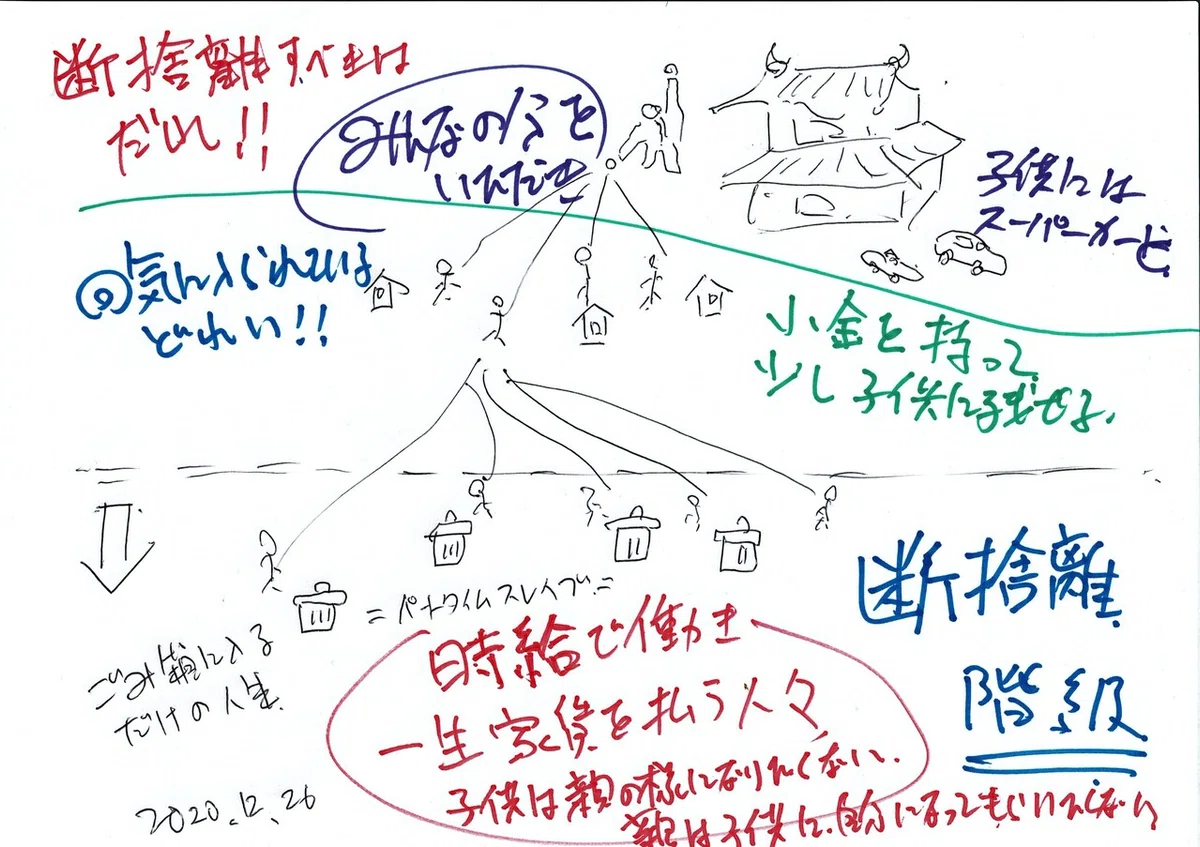 断捨離すべきは
だれ!!
みんなの分を
いただき
子供には
スーパーカーと
気に入られているは
どれい!!
小金を持って
少し子供に残せる.
=パートタイムスレイブ=
断捨離
階級
ごみ箱に入る
だけの人生.
時給で働き
一生家賃を払う人々
子供は親の様になりたくない.
親は子供に、自分になってもらいたくない
2020.12.26